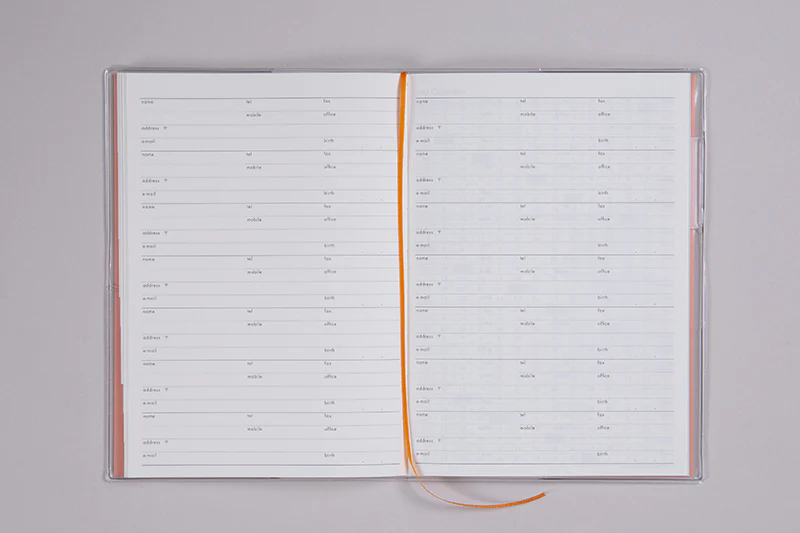 name tel fax
mobile office
address 〒
e-mail birth
name tel fax
mobile office
address 〒
e-mail birth
name tel fax
mobile office
address 〒
e-mail birth
name tel fax
mobile office
address 〒
e-mail birth
name tel fax
mobile office
address 〒
e-mail birth
name tel fax
mobile office
address 〒
e-mail birth
name tel fax
mobile office
address 〒
e-mail birth
name tel fax
mobile office
address 〒
e-mail birth
name tel fax
mobile office
address 〒
e-mail birth
name tel fax
mobile office
address 〒
e-mail birth
name tel fax
mobile office
address 〒
e-mail birth
name tel fax
mobile office
address 〒
e-mail birth
name tel fax
mobile office
address 〒
e-mail birth
name tel fax
mobile office
address 〒
e-mail birth